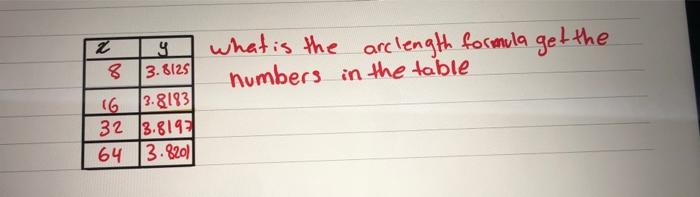 x y
8 3.8125
16 3.8183
32 3.8197
64 3.8201
what is the arclength formula get the
numbers in the table